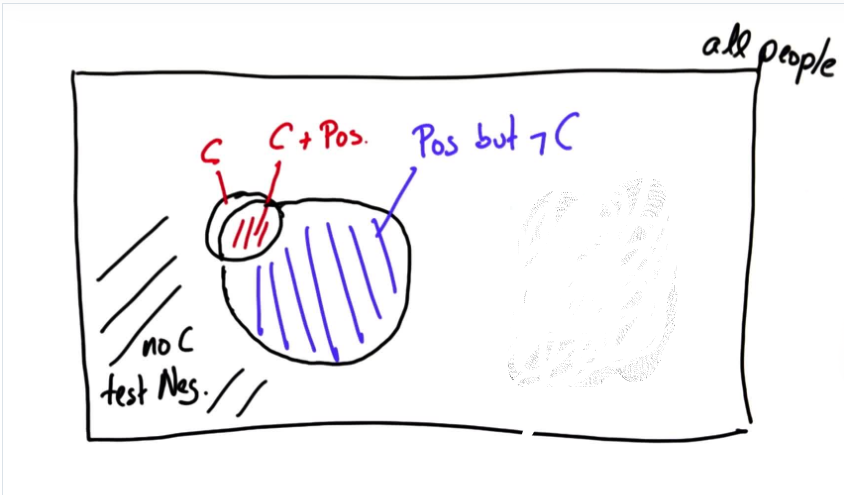 all people
C
C + Pos.
Pos but ¬ C
no C
test Neg.